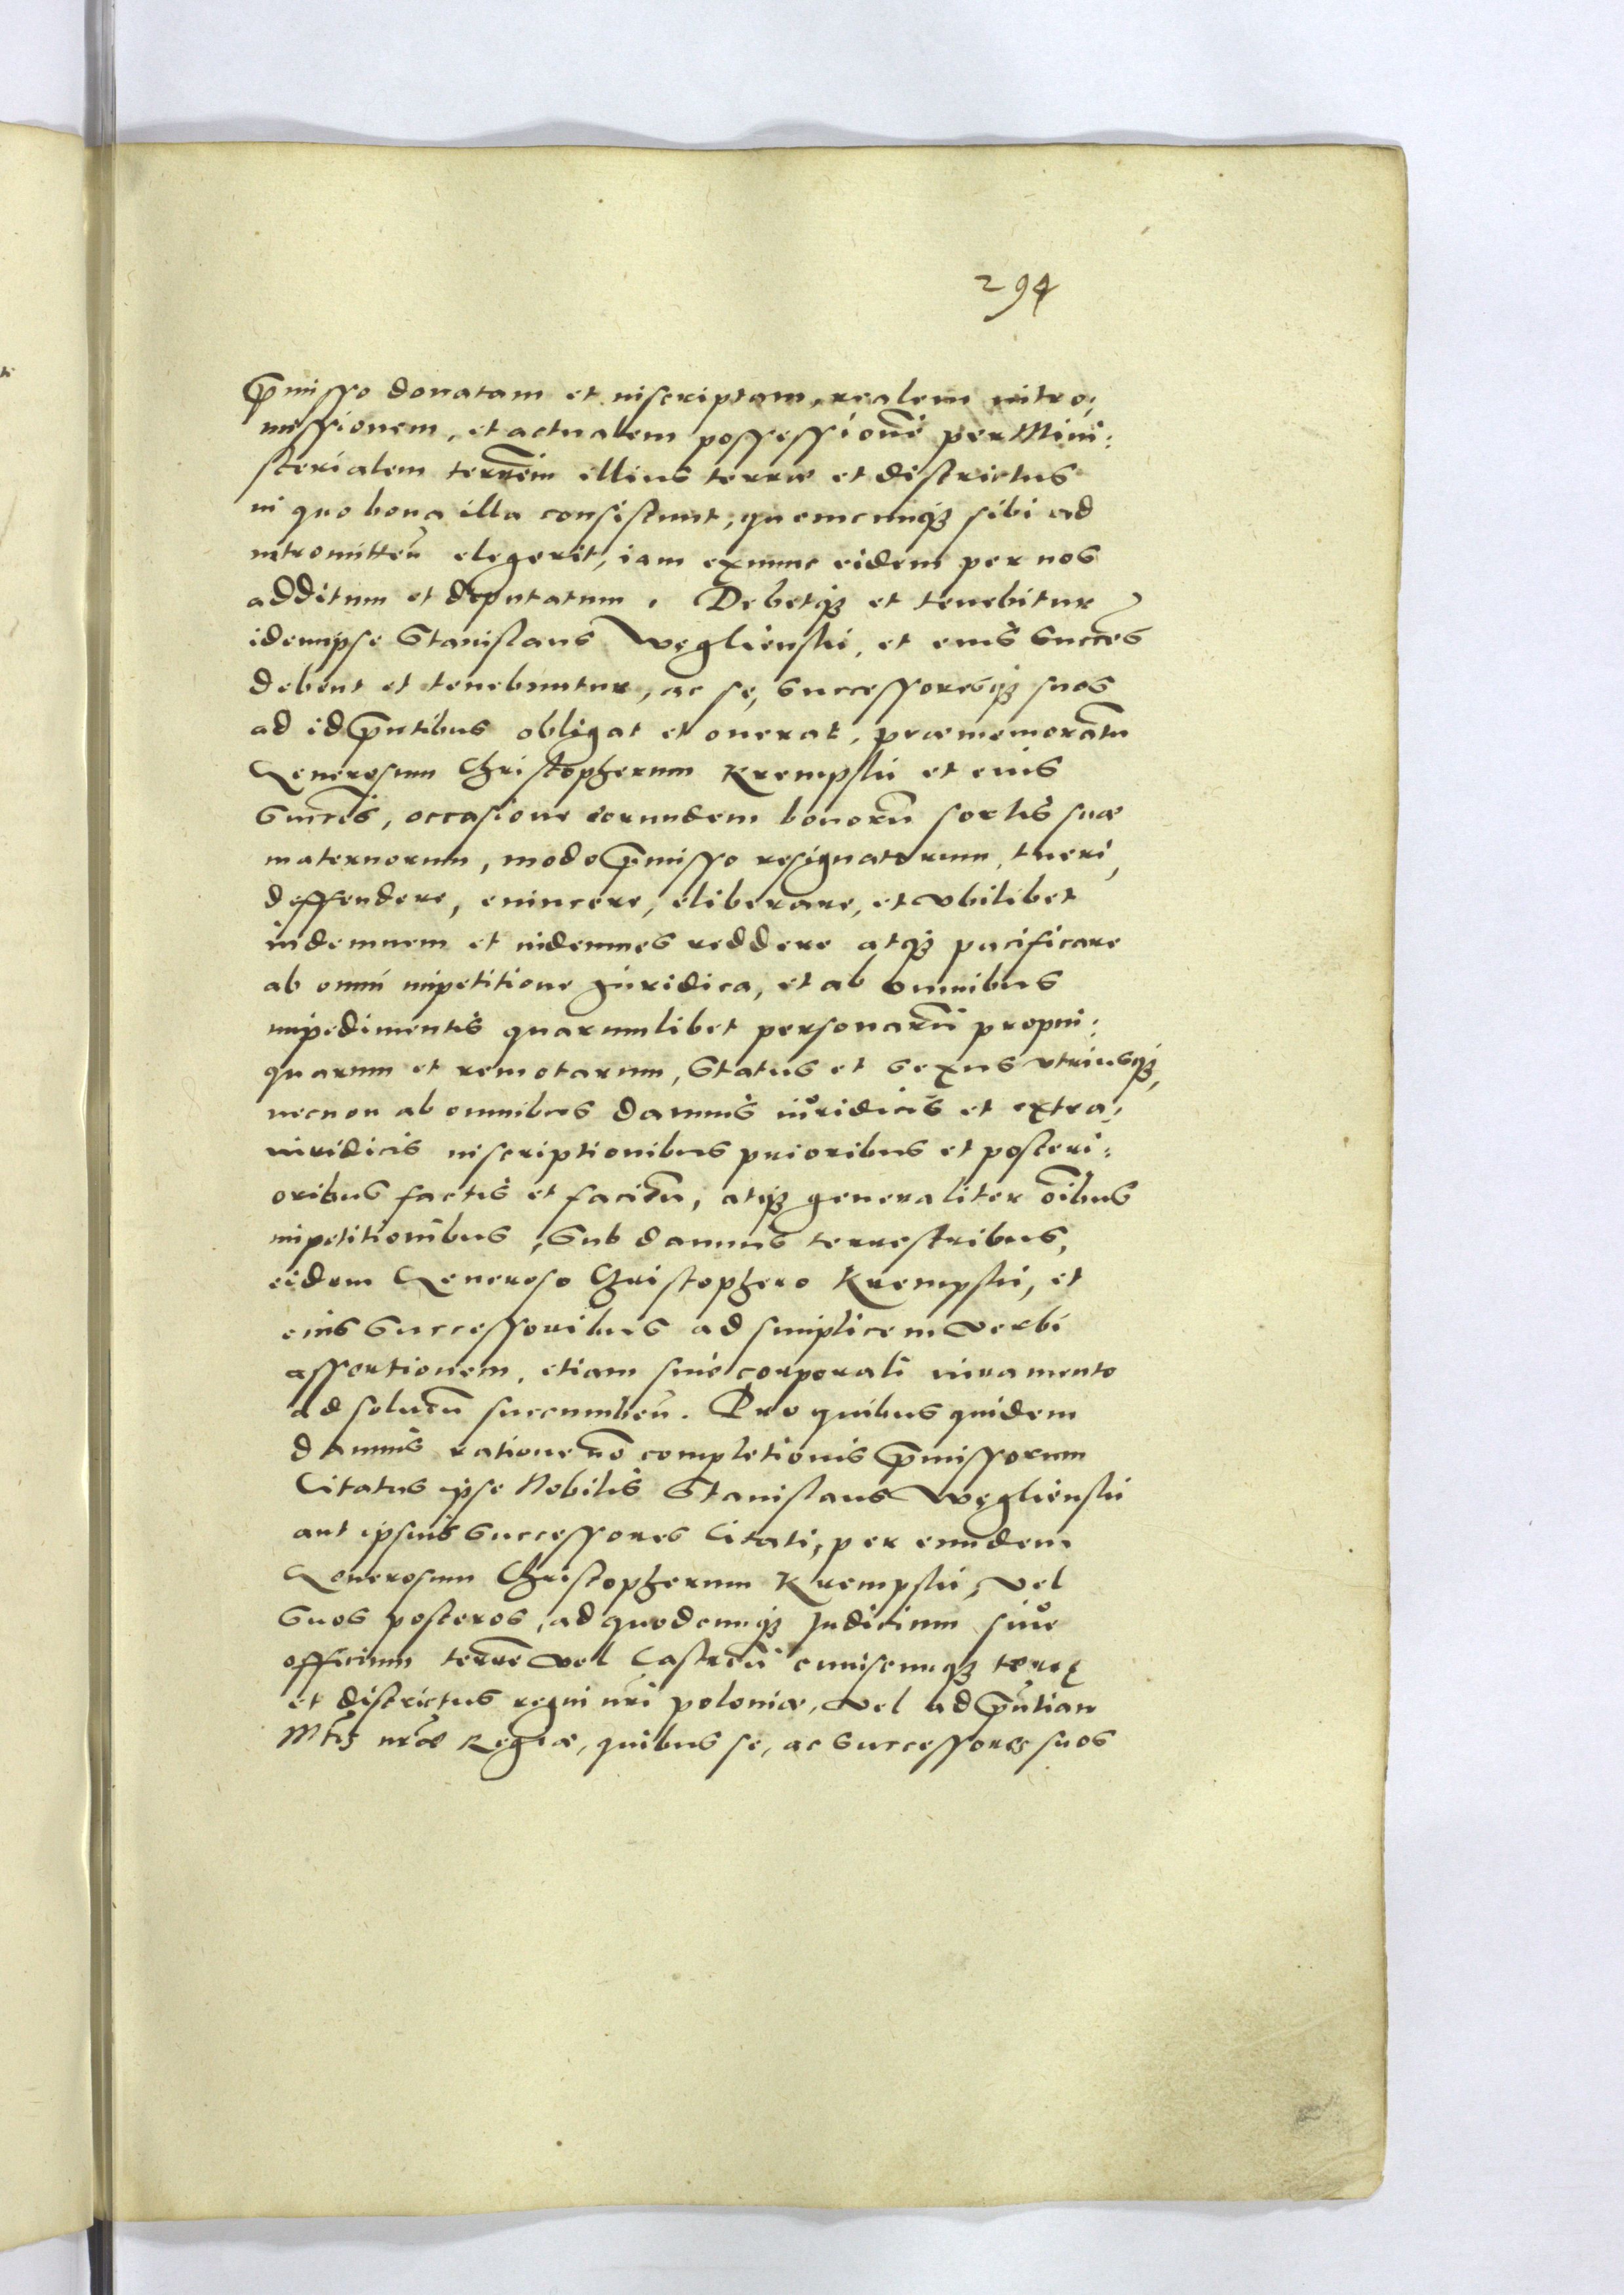 294
p̄misso donatam et inscriptam, realem intro:
missionem, et actualem possessionē per Mini:
sterialem terrēm illius terræ et districtus
in quo bona illa consistunt, quemcunq3 sibi ad
intromitteñ elegerit, iam exnunc eidem per nos
additum et deputatum. Debetq3 et tenebitur
idemipse Stanislaus Węglienski, et eius Succes̄
debent et tenebuntur, ac se, successoresq3 suos
ad id p̄ntibus obligat et onerat, præmemoratū
Generosum Christopherum Krempski et eius
Succes̄, occasione eorundem bonorū sortis suæ
maternorum, modo p̄misso resignatorum, tueri,
deffendere, euincere, eliberare, et vbilibet
indemnem et indemnes reddere atq3 pacificare
ab omni impetitione Juridica, et ab omnibus
impedimentis quarumlibet personarū propin:
quarum et remotarum, Status et Sexus vtriusq3,
necnon ab omnibus damnis iuridicis et extra:
iuridicis inscriptionibus prioribus et posteri:
oribus factis et facieñ, atq3 generaliter oībus
impetitionibus, Sub damnis terrestribus,
eidem Generoso Christophero Krempski, et
eius Successoribus ad simplicem verbi
assertionem, etiam sine corporali iuramento
ad solueñ succumbeñ. Pro quibus quidem
damnis ratione nō completionis p̄missorum
Citatus ipse Nobilis Stanislaus Węglienski
aut ipsius Successores Citati, per eundem
Generosum Christopherum Krempski, vel
Suos posteros, ad quodcunq3 Judicium siue
officium terrē vel Castreñ cuiuscunq3 terrę
et districtus regni nrī poloniæ, vel ad p̄ntiam
Mtis nrǣ Regiæ, quibus se, ac Successores suos